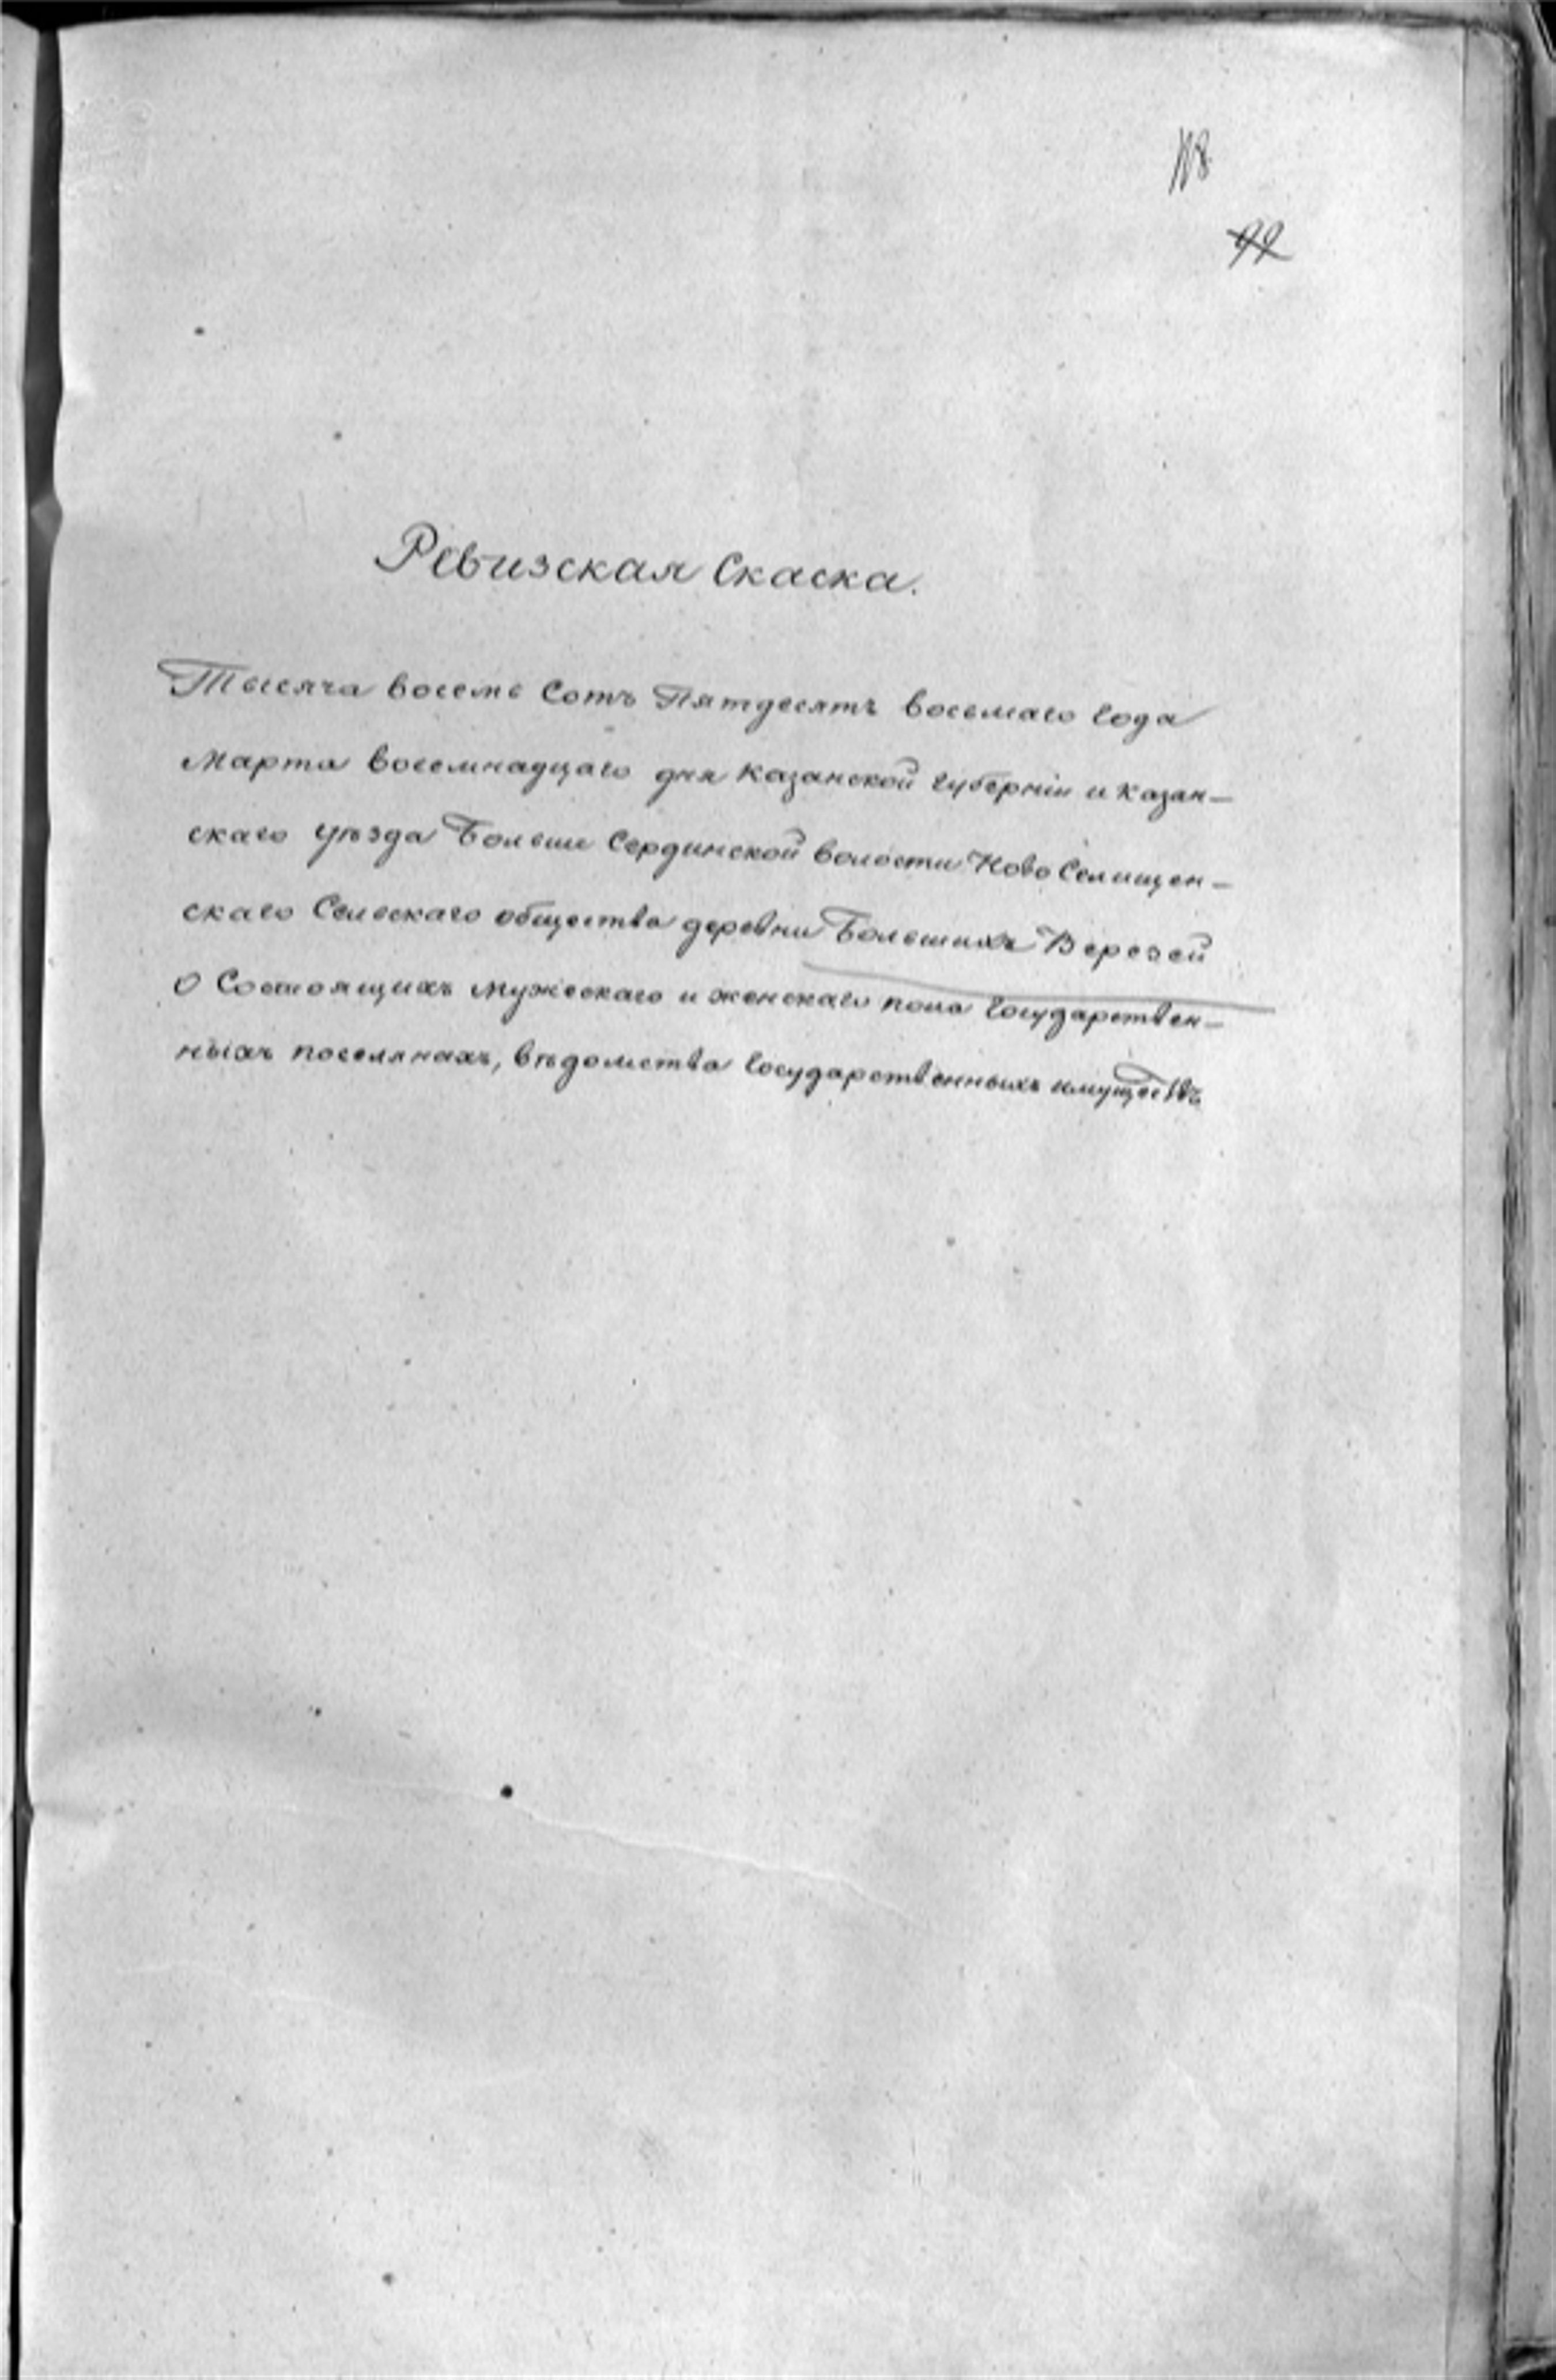 118
99
Ревизская Скаска.
Тысяча восемь Сотъ Пятдесятъ восьмаго года
Марта восемнадцаго дня Казанской губерніи и Казан-
скаго уѣзда Больше Сердинской волости Ново Селищен-
скаго Сельскаго общества деревни Большихъ Верезей
о Состоящихъ мужескаго и женскаго пола Государствен-
ныхъ поселянахъ, вѣдомства Государственныхъ имуществъ